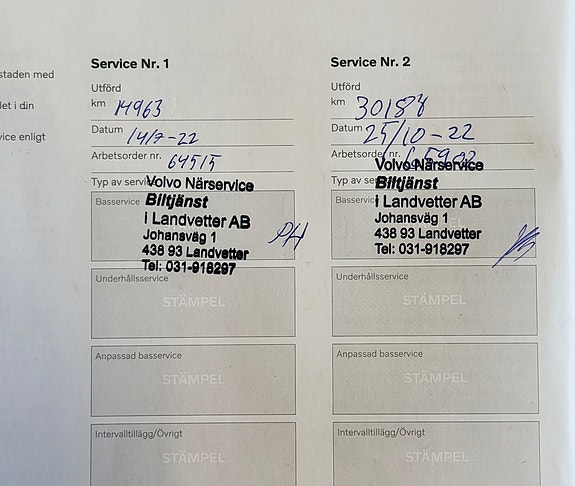 staden med
let i din
vice enligt
Service Nr. 1
Utförd
km 14963
Datum 14/7-22
Arbetsorder nr. 64515
Typ av service
Basservice
Volvo Närservice
Biltjänst
i Landvetter AB
Johansväg 1
438 93 Landvetter
Tel: 031-918297
PH
Underhållsservice
STÄMPEL
Anpassad basservice
STÄMPEL
Intervalltillägg/Övrigt
STÄMPEL
Service Nr. 2
Utförd
km 30184
Datum 25/10-22
Arbetsorder nr.
Typ av
Basservice
Volvo Närservice
Biltjänst
i Landvetter AB
Johansväg 1
438 93 Landvetter
Tel: 031-918297
Underhållsservice
STÄMPEL
Anpassad basservice
STÄMPEL
Intervalltillägg/Övrigt
STÄMPEL